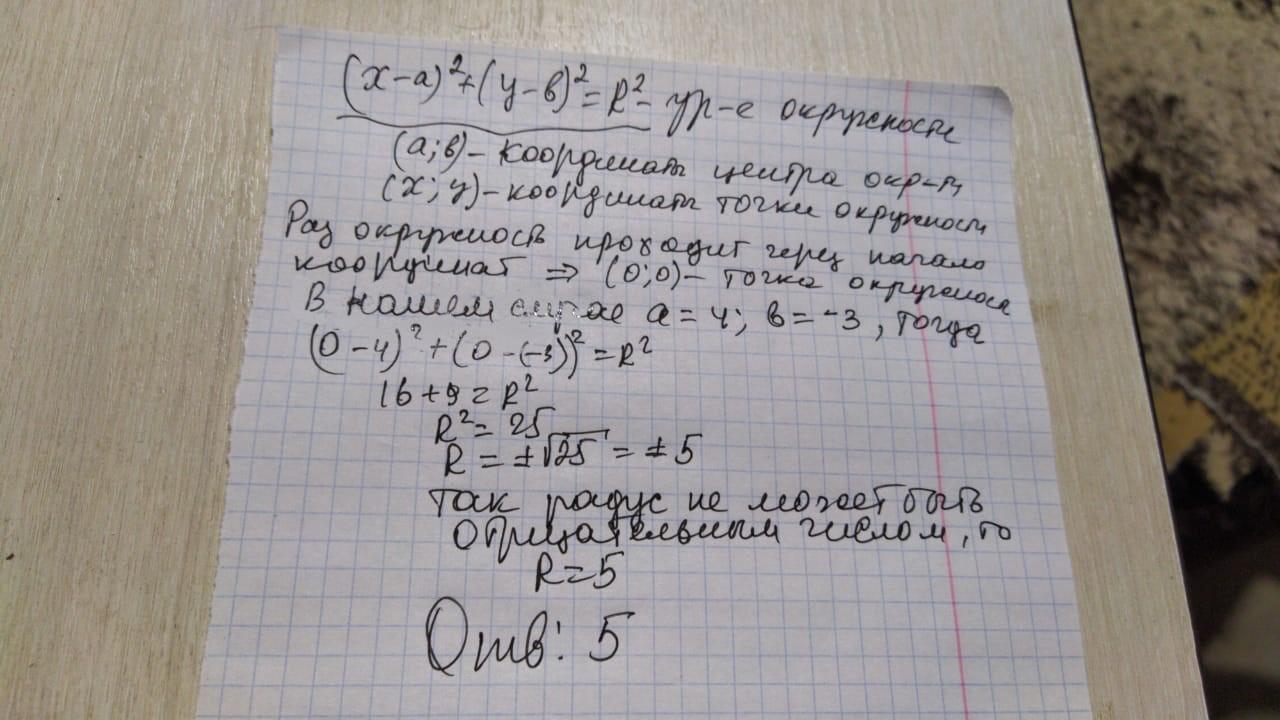 (x-a)²+(y-в)²=R²- ур-е окружности
(a;в)- координаты центра окр-ти
(x; y)- координаты точки окружности
Раз окружность проходит через начало
координат ⇒ (0;0)- точка окружности
В нашем случае a=4; в=-3, тогда
(0-4)²+(0-(-3))²=R²
16+9=R²
R²=25
R=±√25=±5
так радус не может быть
отрицательным числом, то
R=5
Отв: 5